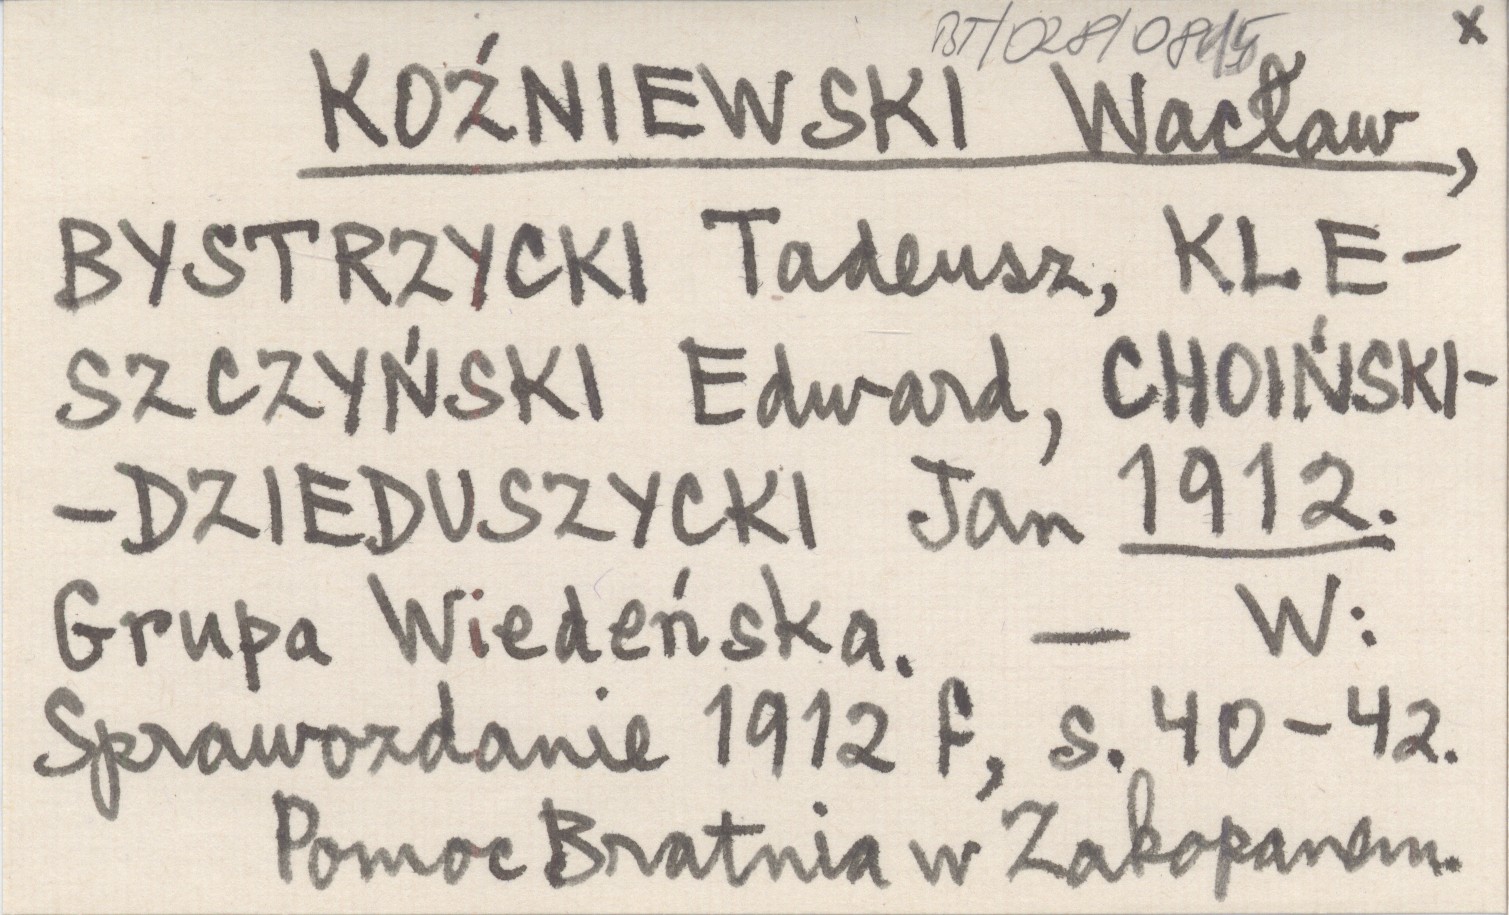 BT/028/0815 x
KOŹNIEWSKI Wacław,
BYSTRZYCKI Tadeusz, KLE-
SZCZYŃSKI Edward, CHOIŃSKI-
-DZIEDUSZYCKI Jan 1912.
Grupa Wiedeńska. — W:
Sprawozdanie 1912 f, s. 40-42.
Pomoc Bratnia w Zakopanem.